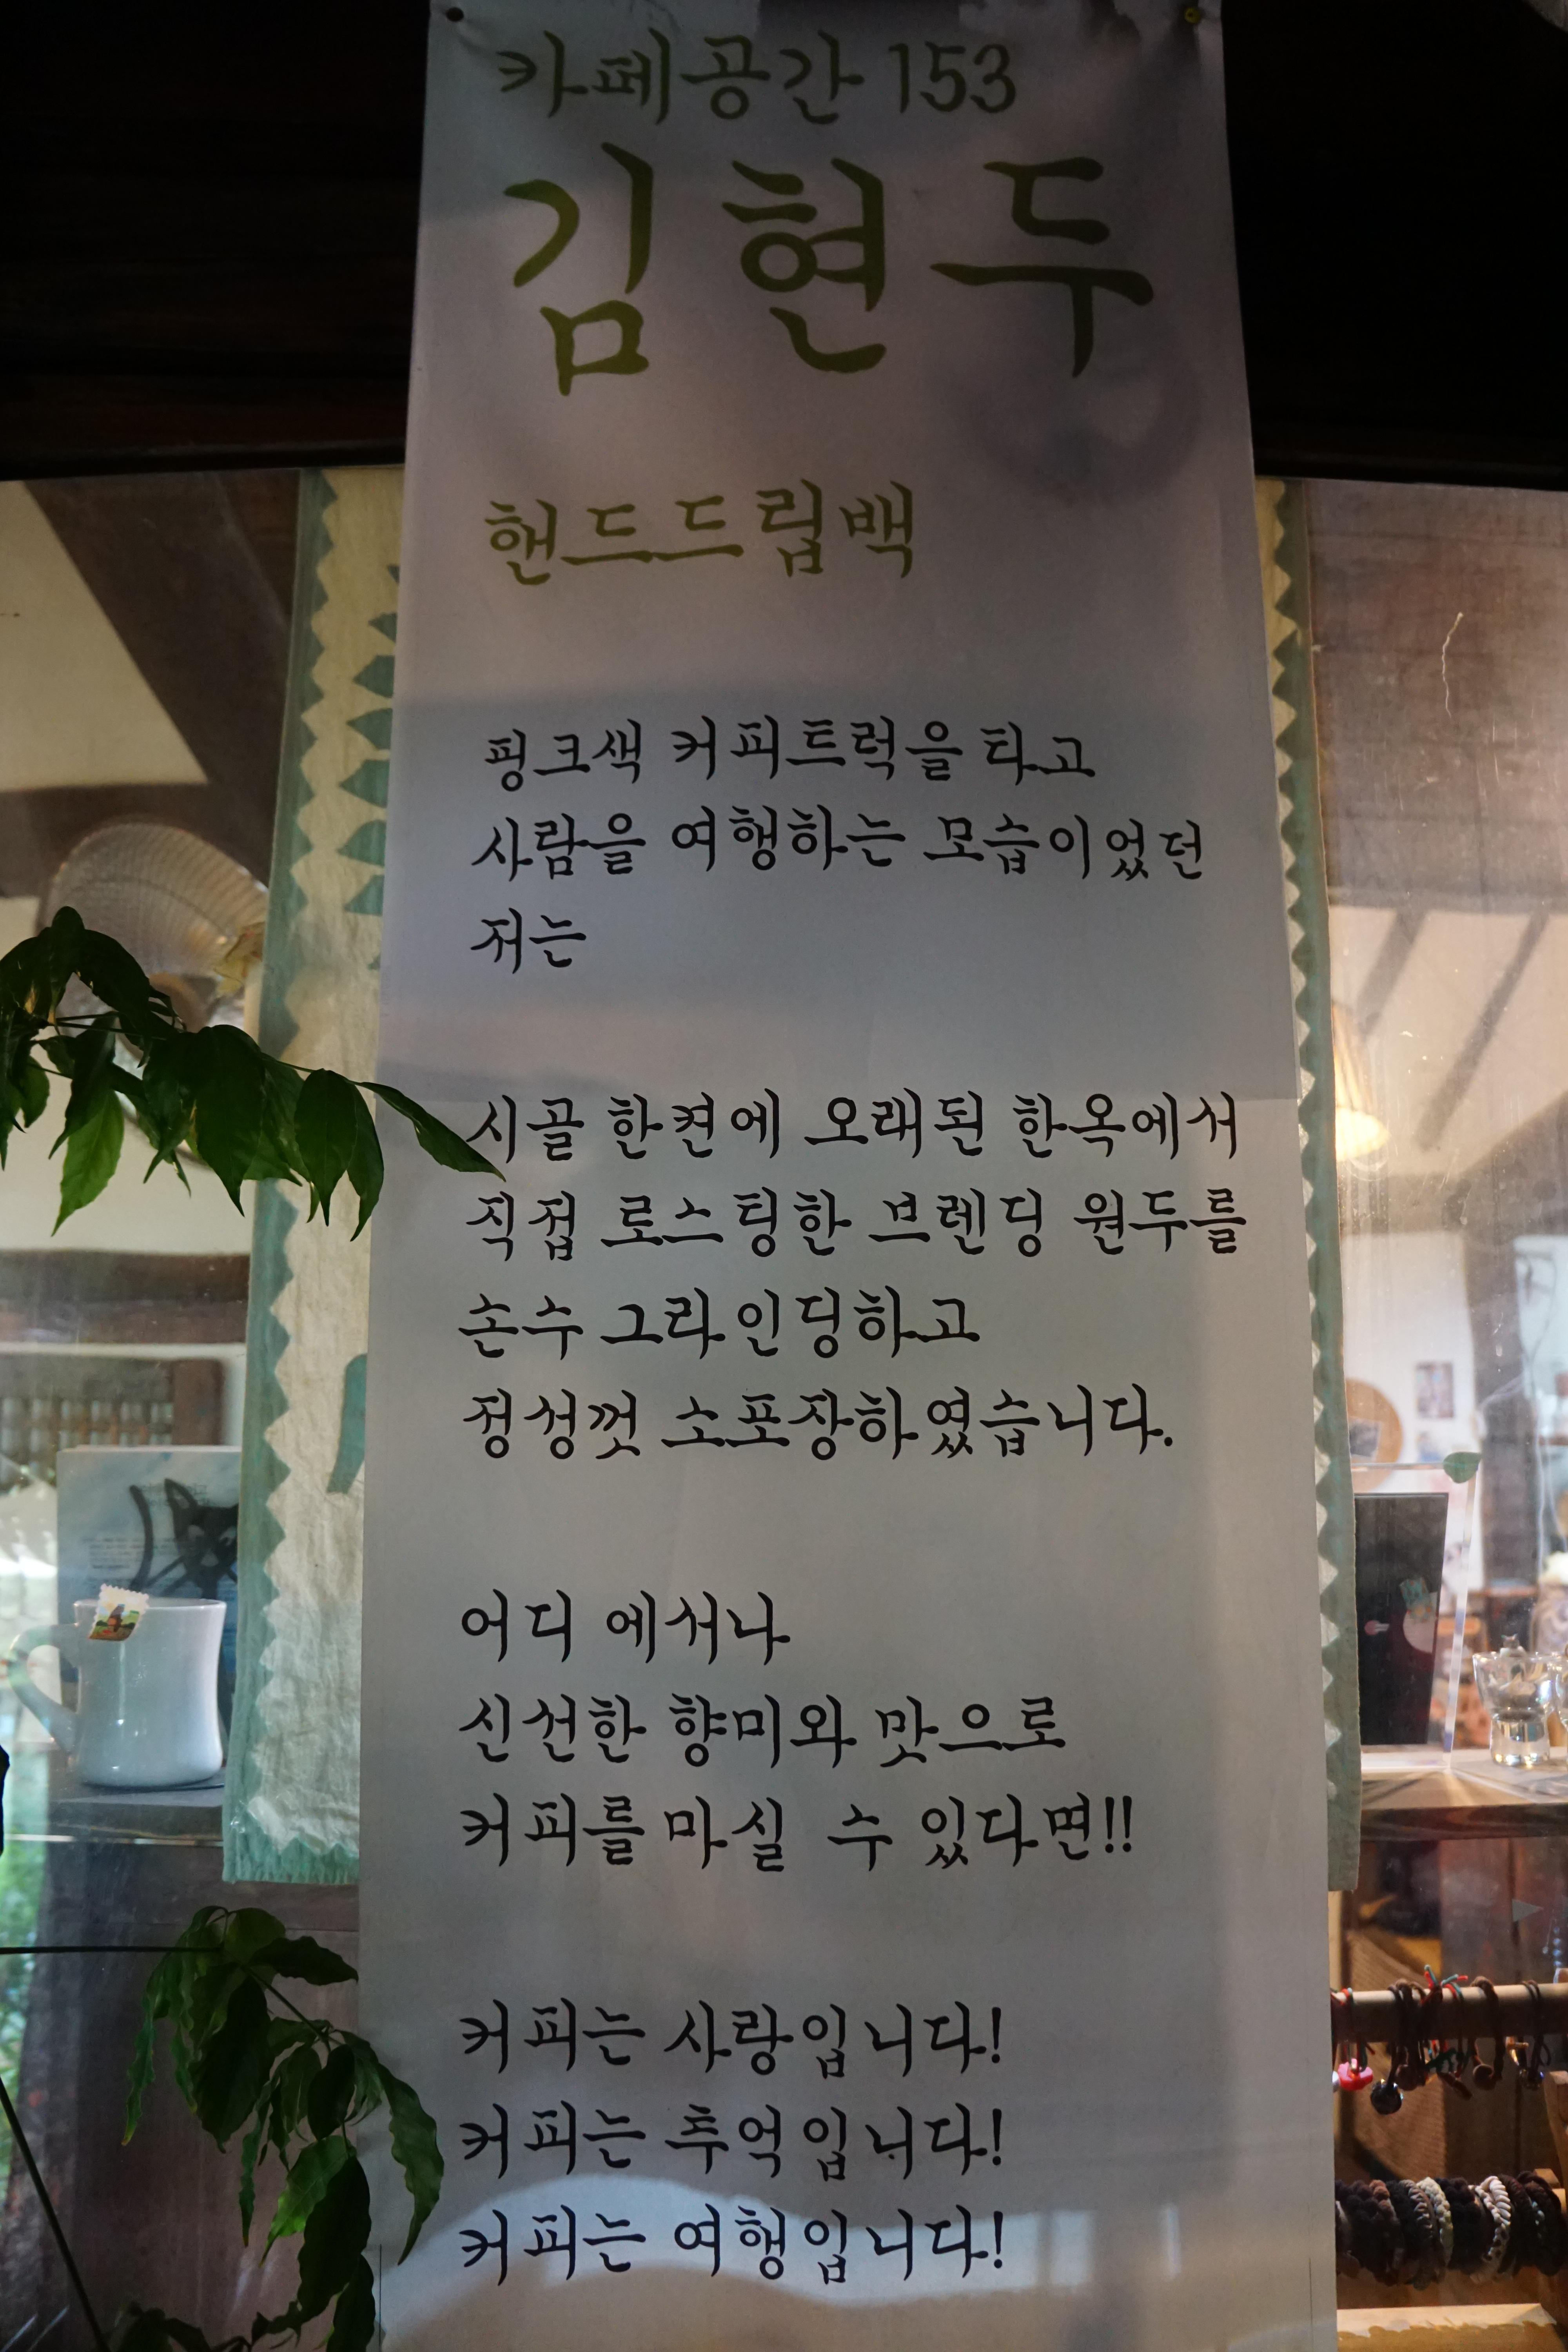 카페공간 153
김현두
핸드드립백
핑크색 커피트럭을 타고
사람을 여행하는 모습이었던
저는
시골 한켠에 오래된 한옥에서
직접 로스팅한 브렌딩 원두를
손수 그라인딩하고
정성껏 소포장하였습니다.
어디 에서나
신선한 향미와 맛으로
커피를 마실 수 있다면!!
커피는 사랑입니다!
커피는 추억입니다!
커피는 여행입니다!